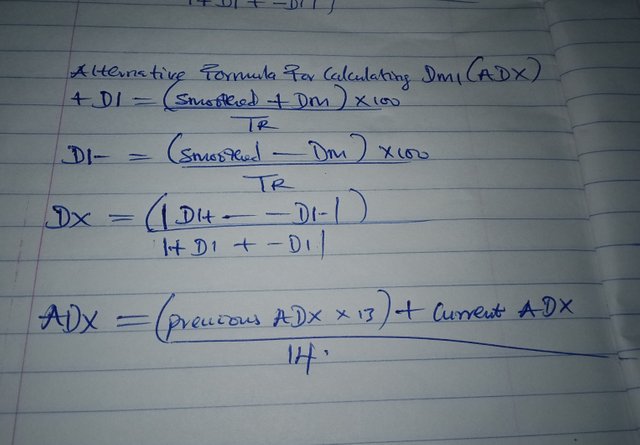 |+DI + -DI|
Alternative Formula For Calculating DMI (ADX)
+ DI = (Smoothed + Dm) × 100
TR
DI- = (Smoothed - Dm) × 100
TR
DX = (| DI+ - - DI- |)
|+ DI + - DI|
ADX = (previous ADX × 13) + Current ADX
14.